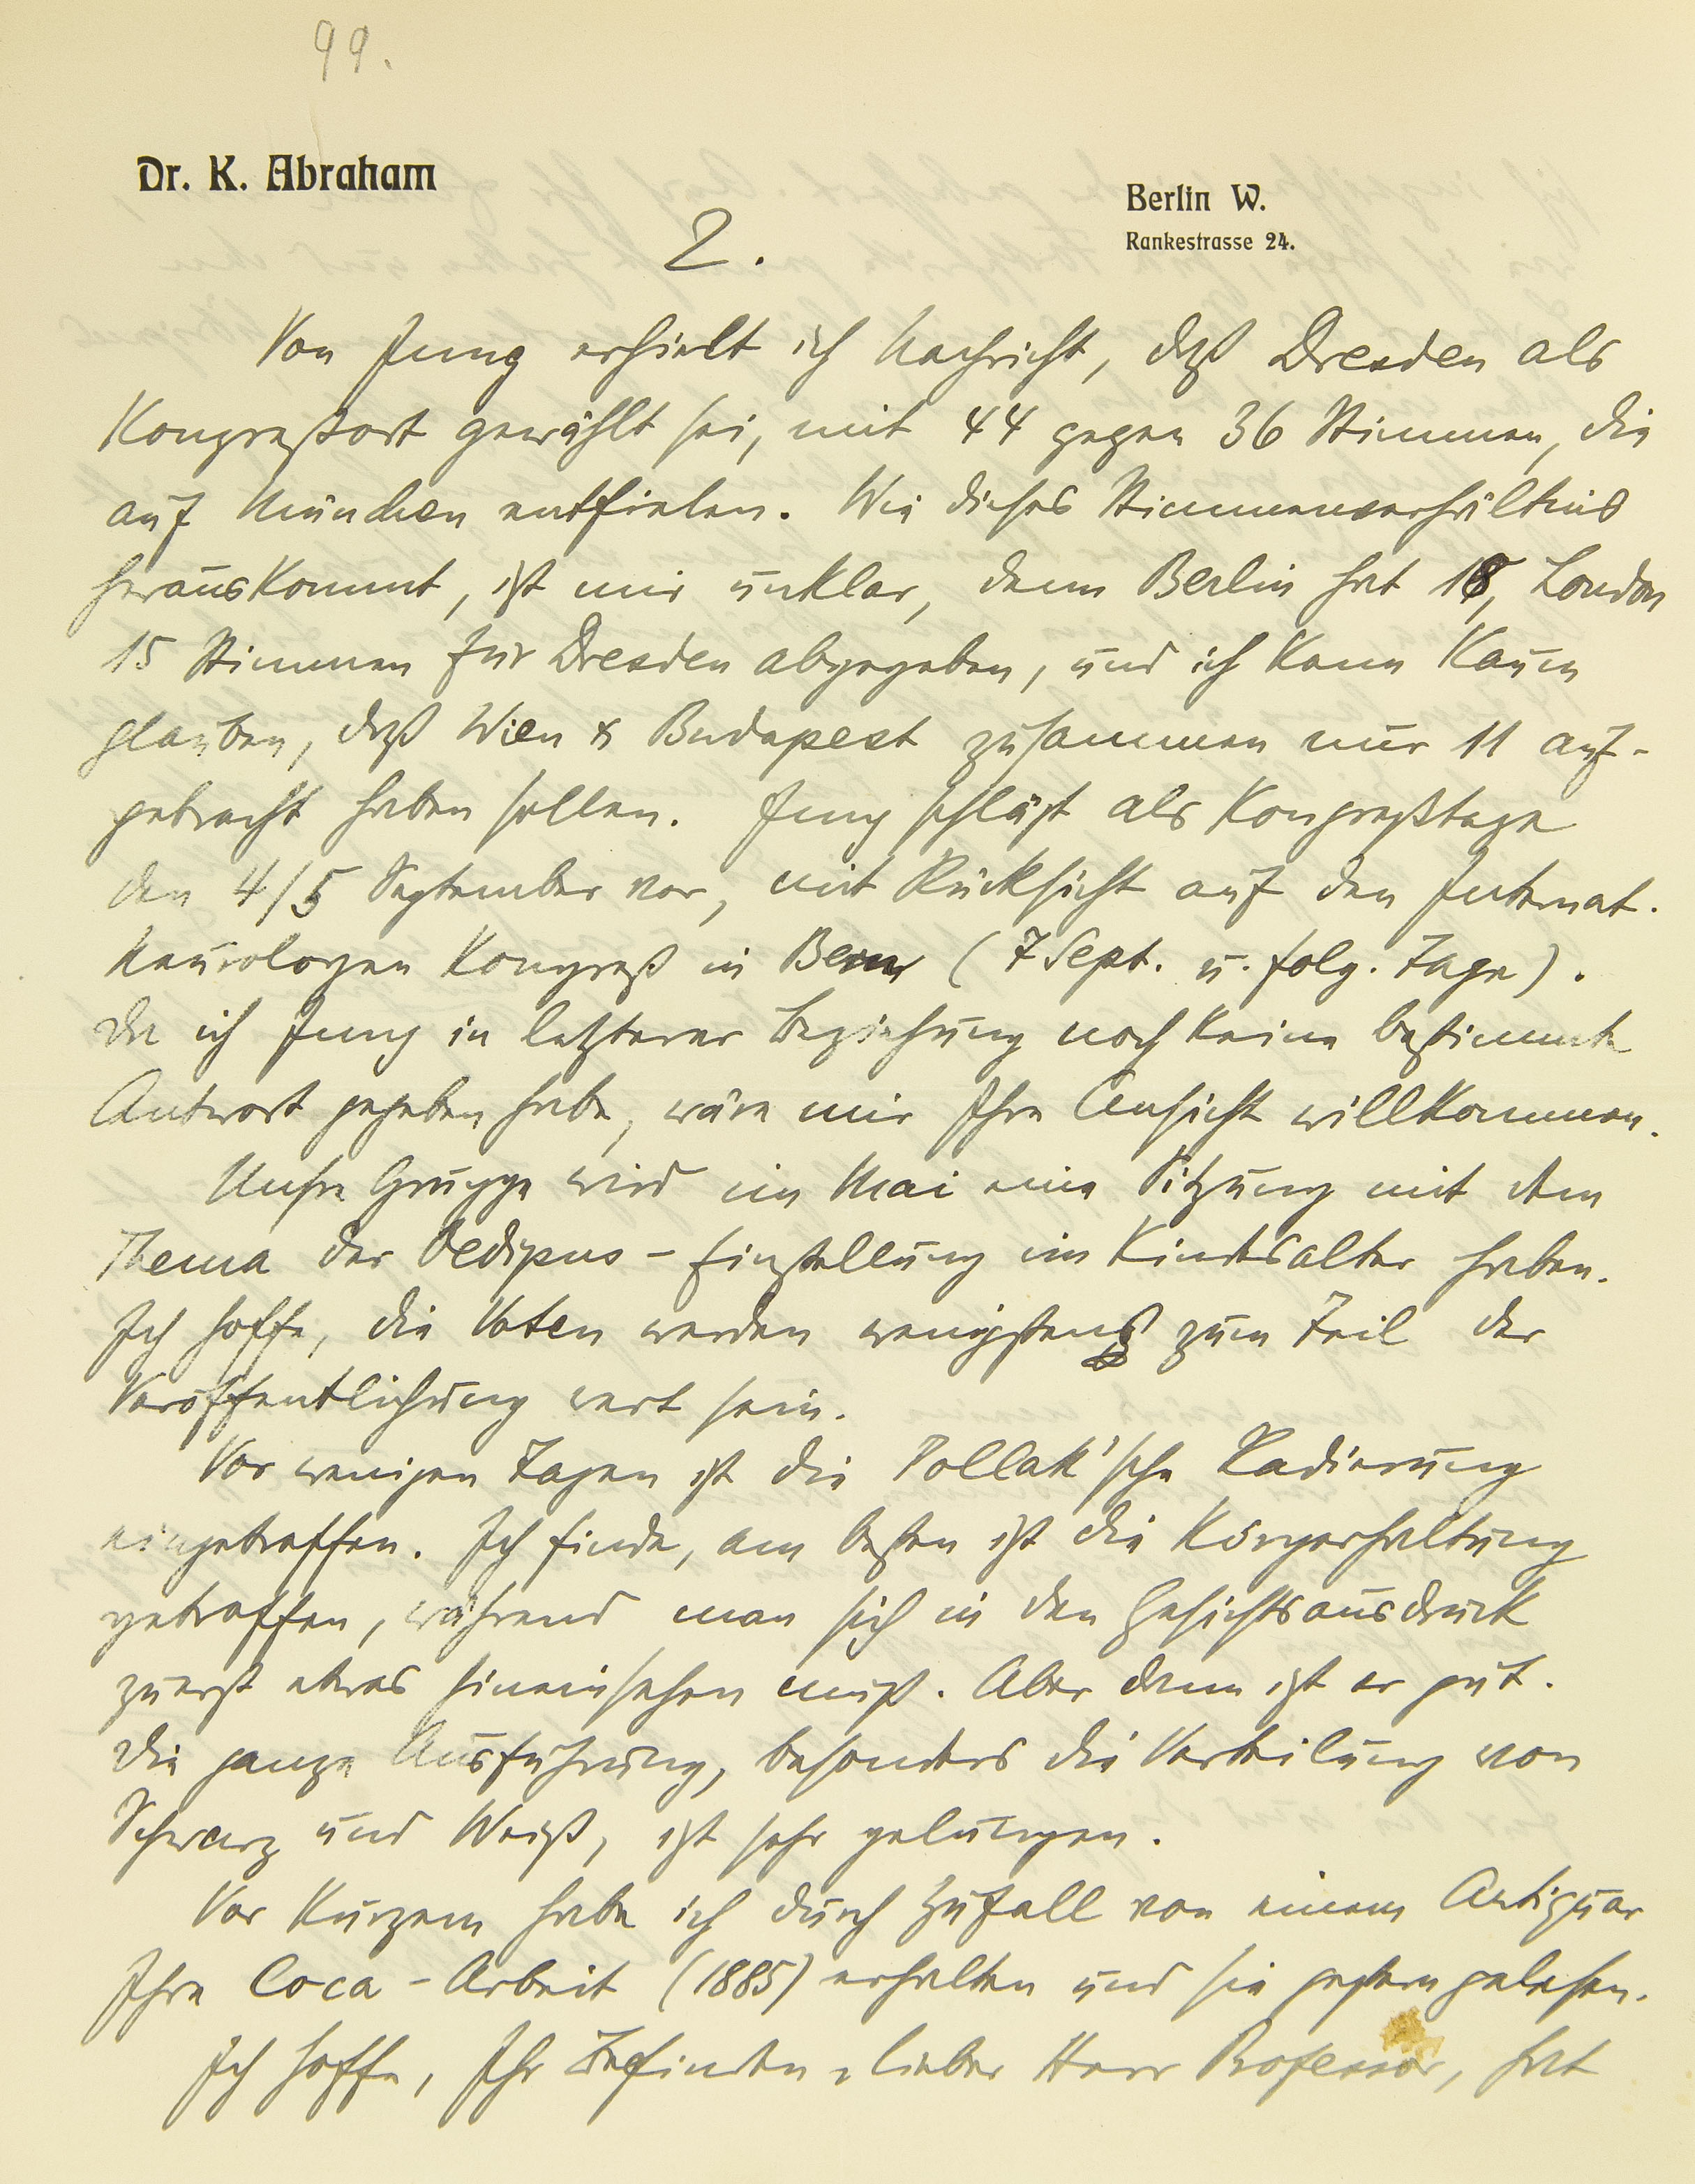 99.
Dr. K. Abraham
Berlin W.
Rankestrasse 24.
2.
Von Jung erhielt ich Nachricht, daß Dresden als
Kongreßort gewählt sei, mit 44 gegen 36 Stimmen, die
auf München entfielen. Wie dieses Stimmenverhältnis
herauskommt, ist mir unklar, denn Berlin hat 18, London
15 Stimmen für Dresden abgegeben, und ich kann kaum
glauben, daß Wien & Budapest zusammen nur 11 auf-
gebracht haben sollen. Jung schlägt als Kongreßtage
den 4/5 September vor, mit Rücksicht auf den Internat.
Neurologen Kongreß in Bern (7 Sept. u. folg. Tage).
Da ich Jung in letzterer Beziehung noch keine bestimmte
Antwort gegeben habe, wäre mir Ihre Ansicht willkommen.
Unsre Gruppe wird im Mai eine Sitzung mit dem
Thema der Oedipus-Einstellung im Kindesalter haben.
Ich hoffe, die Voten werden wenigstens zum Teil der
Veröffentlichung wert sein.
Vor wenigen Tagen ist die Pollak'sche Radierung
eingetroffen. Ich finde, am besten ist die Körperhaltung
getroffen, während man sich in den Gesichtsausdruck
zuerst etwas hineinsehen muß. Aber dann ist er gut.
Die ganze Ausführung, besonders die Verteilung von
Schwarz und Weiß, ist sehr gelungen.
Vor Kurzem habe ich durch Zufall von einem Antiquar
Ihre Coca-Arbeit (1885) erhalten und sie gestern gelesen.
Ich hoffe, Ihr Befinden, lieber Herr Professor, hat